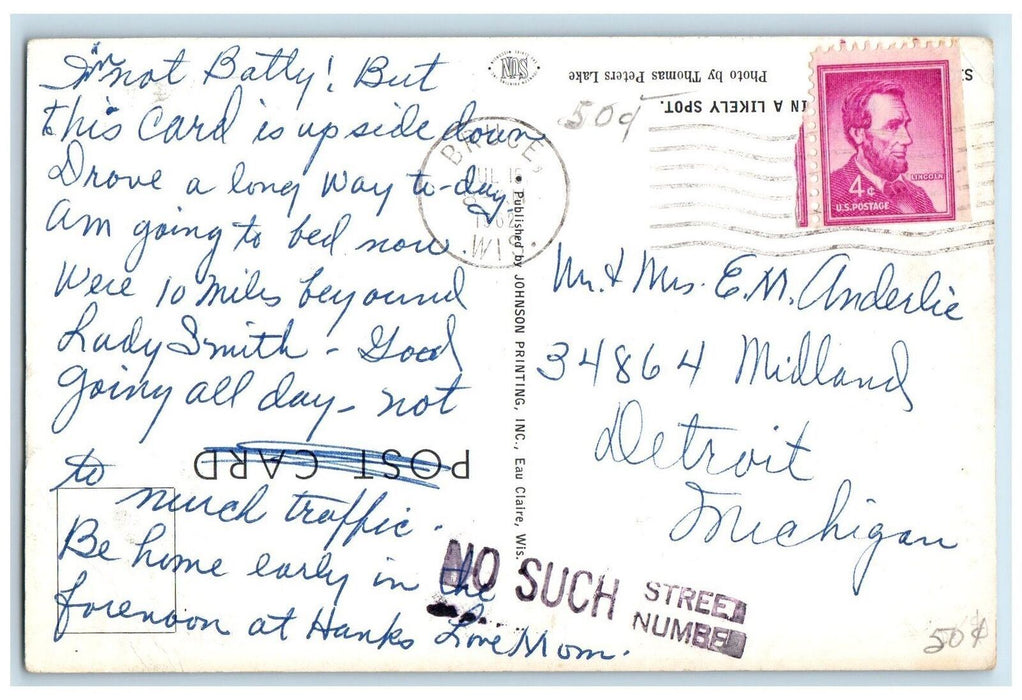 I'm not Batty! But
this Card is up side down
Drove a long way to-day
am going to bed now.
Were 10 miles beyound
Lady Smith - Good
going all day - not
to
much traffic.
Be home early in the
forenoon at Hanks Love Mom.
POST CARD
NMS
Photo by Thomas Peters Lake
IN A LIKELY SPOT.
50¢
BRUCE,
WIS.
4¢
LINCOLN
U.S. POSTAGE
• Published by JOHNSON PRINTING, INC., Eau Claire, Wis.
Mr. & Mrs. E.M. Anderlie
34864 Midland
Detroit
Michigan
NO SUCH
STREET
NUMBER
50¢